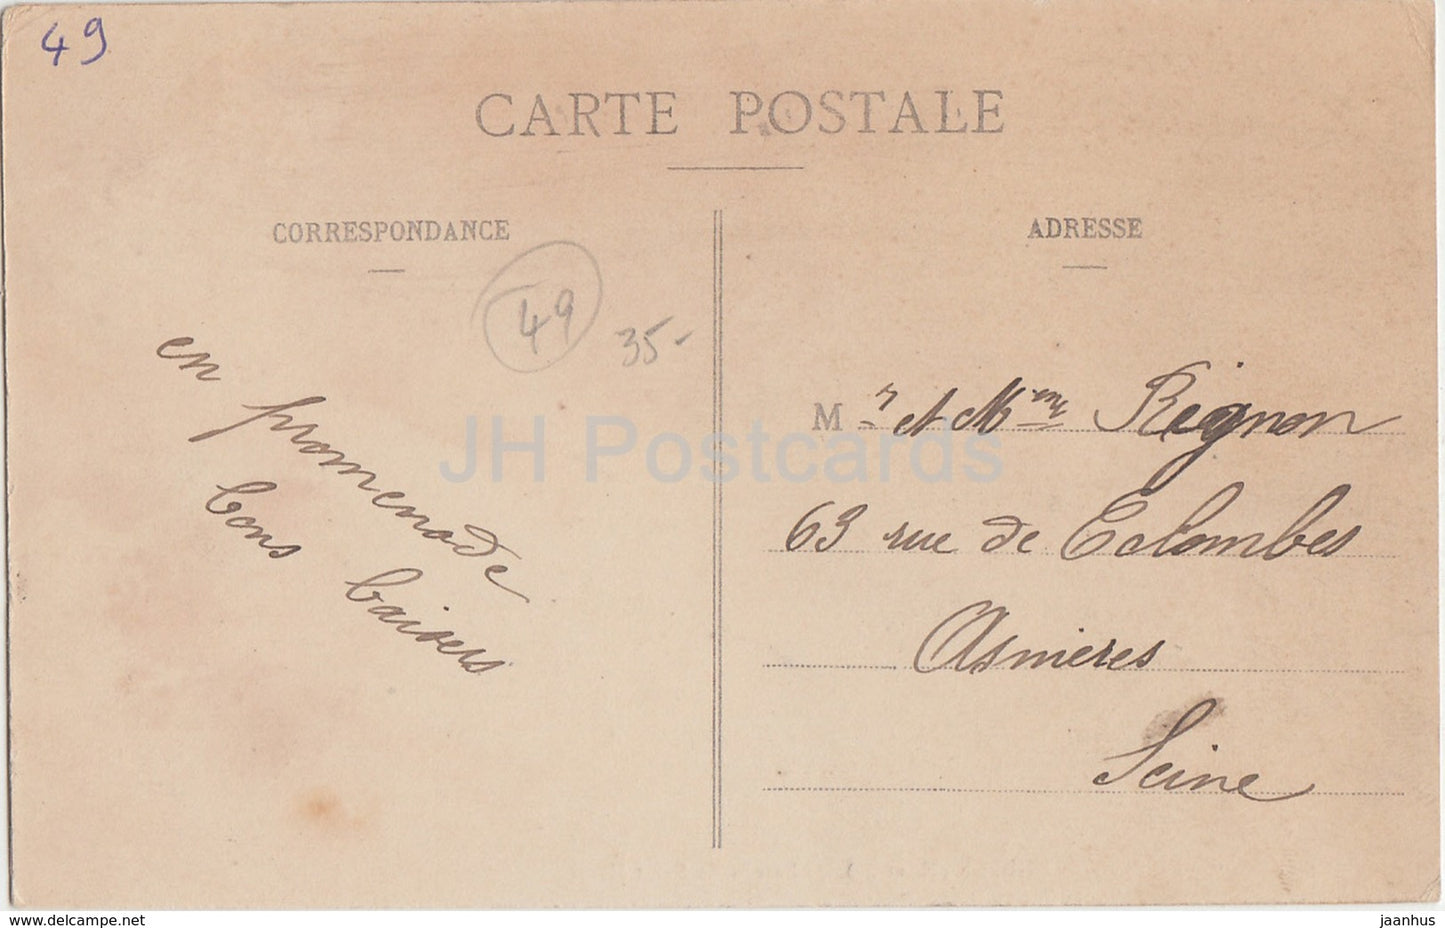 49
CARTE POSTALE
CORRESPONDANCE
ADRESSE
49
35-
en promenade
bons baisers
Mr et Mme Rignon
63 rue de Colombes
Asnières
Seine
JH Postcards
www.delcampe.net
jaanhus